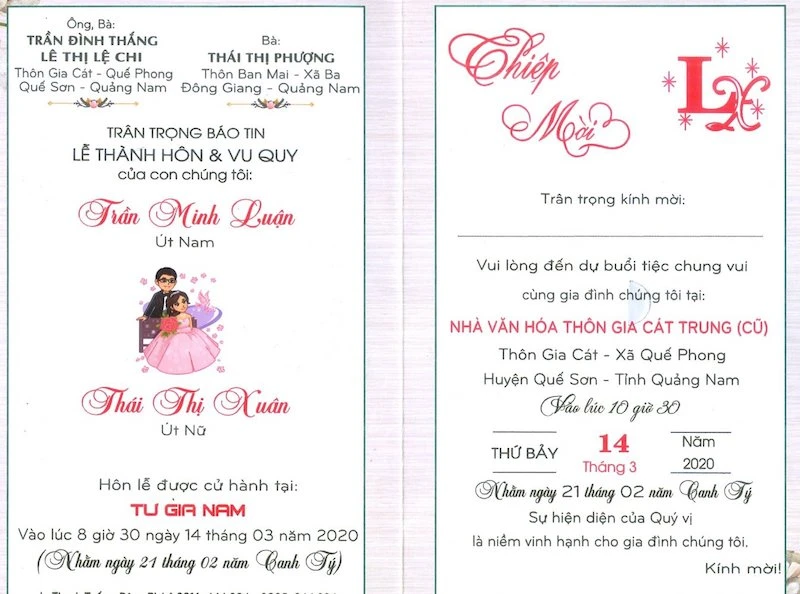 Ông, Bà:
TRẦN ĐÌNH THẮNG
LÊ THỊ LỆ CHI
Thôn Gia Cát - Quế Phong
Quế Sơn - Quảng Nam
Bà:
THÁI THỊ PHƯỢNG
Thôn Ban Mai - Xã Ba
Đông Giang - Quảng Nam
TRÂN TRỌNG BÁO TIN
LỄ THÀNH HÔN & VU QUY
của con chúng tôi:
Trần Minh Luận
Út Nam
Thái Thị Xuân
Út Nữ
Hôn lễ được cử hành tại:
TƯ GIA NAM
Vào lúc 8 giờ 30 ngày 14 tháng 03 năm 2020
(Nhằm ngày 21 tháng 02 năm Canh Tý)
Thiệp
Mời
LX
Trân trọng kính mời:
Vui lòng đến dự buổi tiệc chung vui
cùng gia đình chúng tôi tại:
NHÀ VĂN HÓA THÔN GIA CÁT TRUNG (CŨ)
Thôn Gia Cát - Xã Quế Phong
Huyện Quế Sơn - Tỉnh Quảng Nam
Vào lúc 10 giờ 30
THỨ BẢY
14
Tháng 3
Năm
2020
Nhằm ngày 21 tháng 02 năm Canh Tý
Sự hiện diện của Quý vị
là niềm vinh hạnh cho gia đình chúng tôi.
Kính mời!